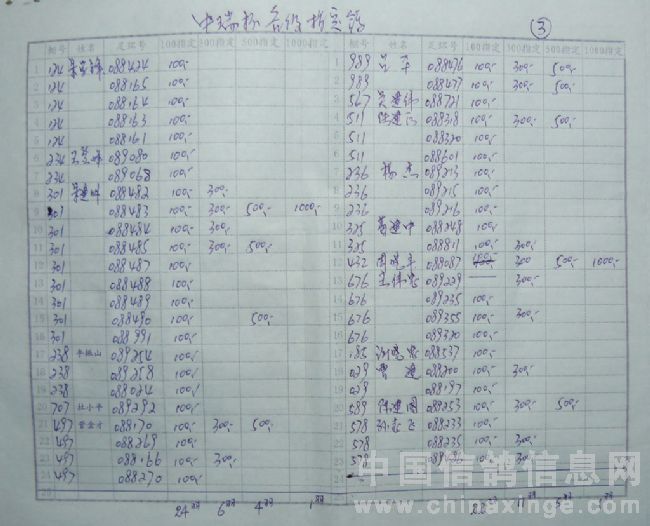 中瑞杯各级指定鸽 ③
棚号 姓名 足环号 100指定 300指定 500指定 1000指定
1 124 088424 100,-
2 124 088165 100,-
3 124 088164 100,-
4 124 088163 100,-
5 124 088161 100,-
6 234 089080 100,-
7 234 089068 100,-
8 301 088482 100,- 300,-
9 301 088483 100,- 300,- 500,- 1000,-
10 301 088484 100,- 300,-
11 301 088485 100,- 300,- 500,-
12 301 088487 100,-
13 301 088488 100,-
14 301 088489 100,-
15 301 088490 100,- 500,-
16 301 088991 100,-
17 238 李振山 089254 100,-
18 238 089258 100,-
19 238 088024 100,-
20 707 杜小平 089292 100,-
21 497 曹金才 088170 100,- 300,- 500,-
22 497 088269 100,-
23 497 088166 100,- 300,-
24 497 088270 100,-
25
24羽 6羽 4羽 1羽
棚号 姓名 足环号 100指定 300指定 500指定 1000指定
1 989 吕平 088476 100,- 300,- 500,-
2 989 088477 100,- 300,- 500,-
3 567 吴建伟 088721 100,-
4 511 088318 100,- 300,- 500,-
5 511 088320 100,-
6 511 088601 100,-
7 236 杨杰 089213 100,-
8 236 089215 100,-
9 236 089216 100,-
10 325 葛建中 088248 100,-
11 325 088811 100,- 300,-
12 432 089087 100,- 300 500,- 1000,-
13 676 089229 300,-
14 676 089235 100,-
15 676 089255 100,- 300,-
16 676 089320 100,-
17 185 088537 100,-
18 029 曹建 088200 100,- 300,-
19 029 088197 100,-
20 589 陈建国 089253 100,- 300,- 500,-
21 578 孙彪飞 088233 100,-
22 578 088235 100,- 300,-
23 578 100,- 300,-
24
22羽 11羽
中国信鸽信息网
www.chinaxinge.com